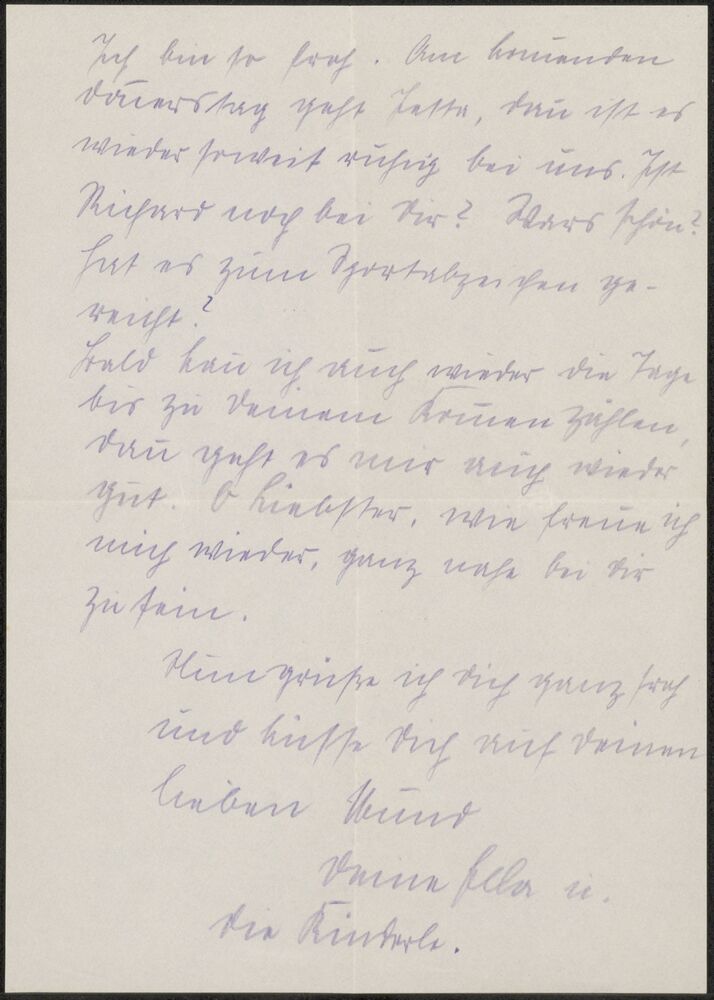 Ich bin so froh. Am kom̅enden
Don̅erstag geht Jetta, dan̅ ist es
wieder soweit ruhig bei uns. Ist
Richard noch bei Dir? Wars schön?
hat es zum Sportabzeichen ge-
reicht?
Bald kan̅ ich auch wieder die Tage
bis zu Deinem Kom̅en zählen,
dan̅ geht es mir auch wieder
gut. O Liebster, wie freue ich
mich wieder, ganz nahe bei Dir
zu sein.
Nun grüße ich Dich ganz froh
und küsse Dich auf Deinen
lieben Mund
Deine Ella u.
die Kinderle.